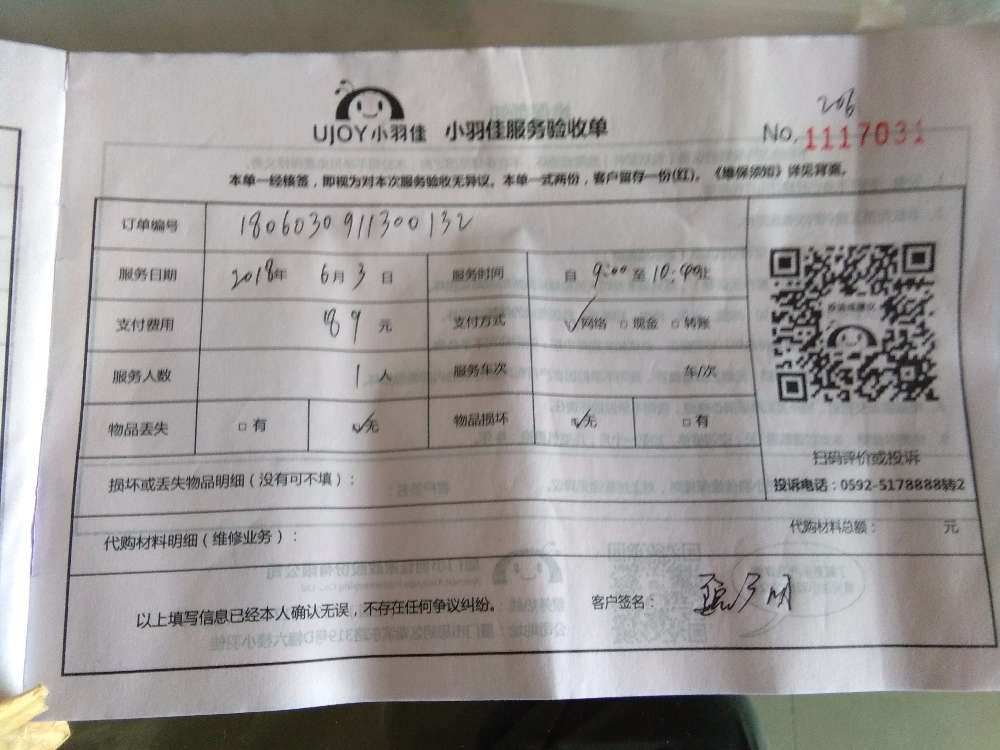 206
UJOY小羽佳 小羽佳服务验收单 No. 1117031
本单一经核签，即视为对本次服务验收无异议。本单一式两份，客户留存一份(红)。《维保须知》详见背面。
订单编号 180603091130013２
服务日期 2018年 6月3日 服务时间 自 9:00 至 10:40止
支付费用 89 元 支付方式 ☑网络 □现金 □转账
服务人数 1 人 服务车次 车/次
物品丢失 □有 ☑无 物品损坏 ☑无 □有
投诉或建议
扫码评价或投诉
投诉电话：0592-5178888转2
损坏或丢失物品明细（没有可不填）：
代购材料明细（维修业务）： 代购材料总额： 元
以上填写信息已经本人确认无误，不存在任何争议纠纷。 客户签名：